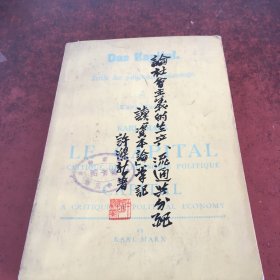 Das Kapital.
論社會主義的生产、流通与分配
讀資本論筆記
許滌新著
LE
PITAL
POLITIQUE
A CRITIQUE
POLITICAL ECONOMY
BY
KARL MARX